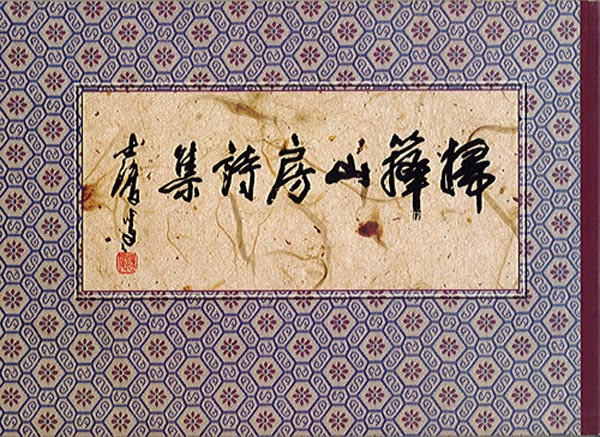 掃籜山房詩集